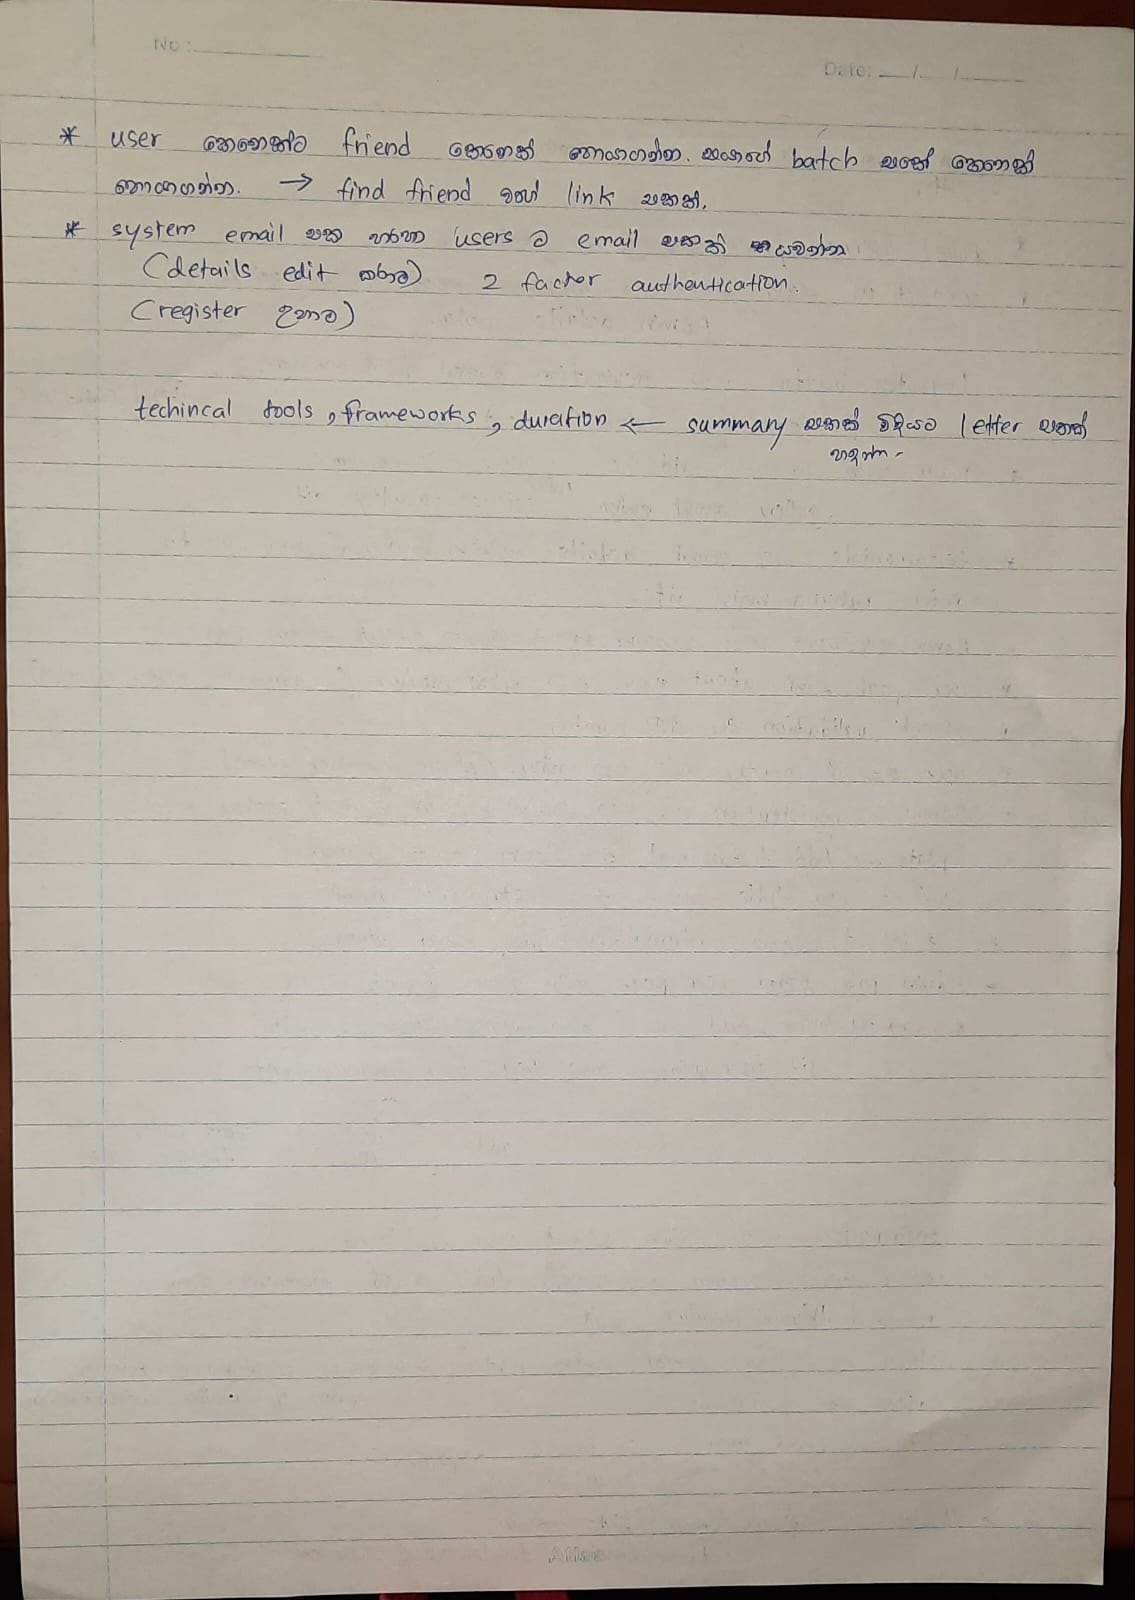 No :
Date: / /
* user කෙනෙක්ට friend කෙනෙක් හොයාගන්න. එයාගේ batch එකේ කෙනෙක්
හොයාගන්න. → find friend වගේ link එකක්.
* system email එක හරහා users ට email එකක් යවන්න
(details edit කරාම) 2 factor authentication.
(register උනාම)
techincal tools, frameworks, duration ← summary එකක් විදියට letter එකක්
හදන්න -
Atlas